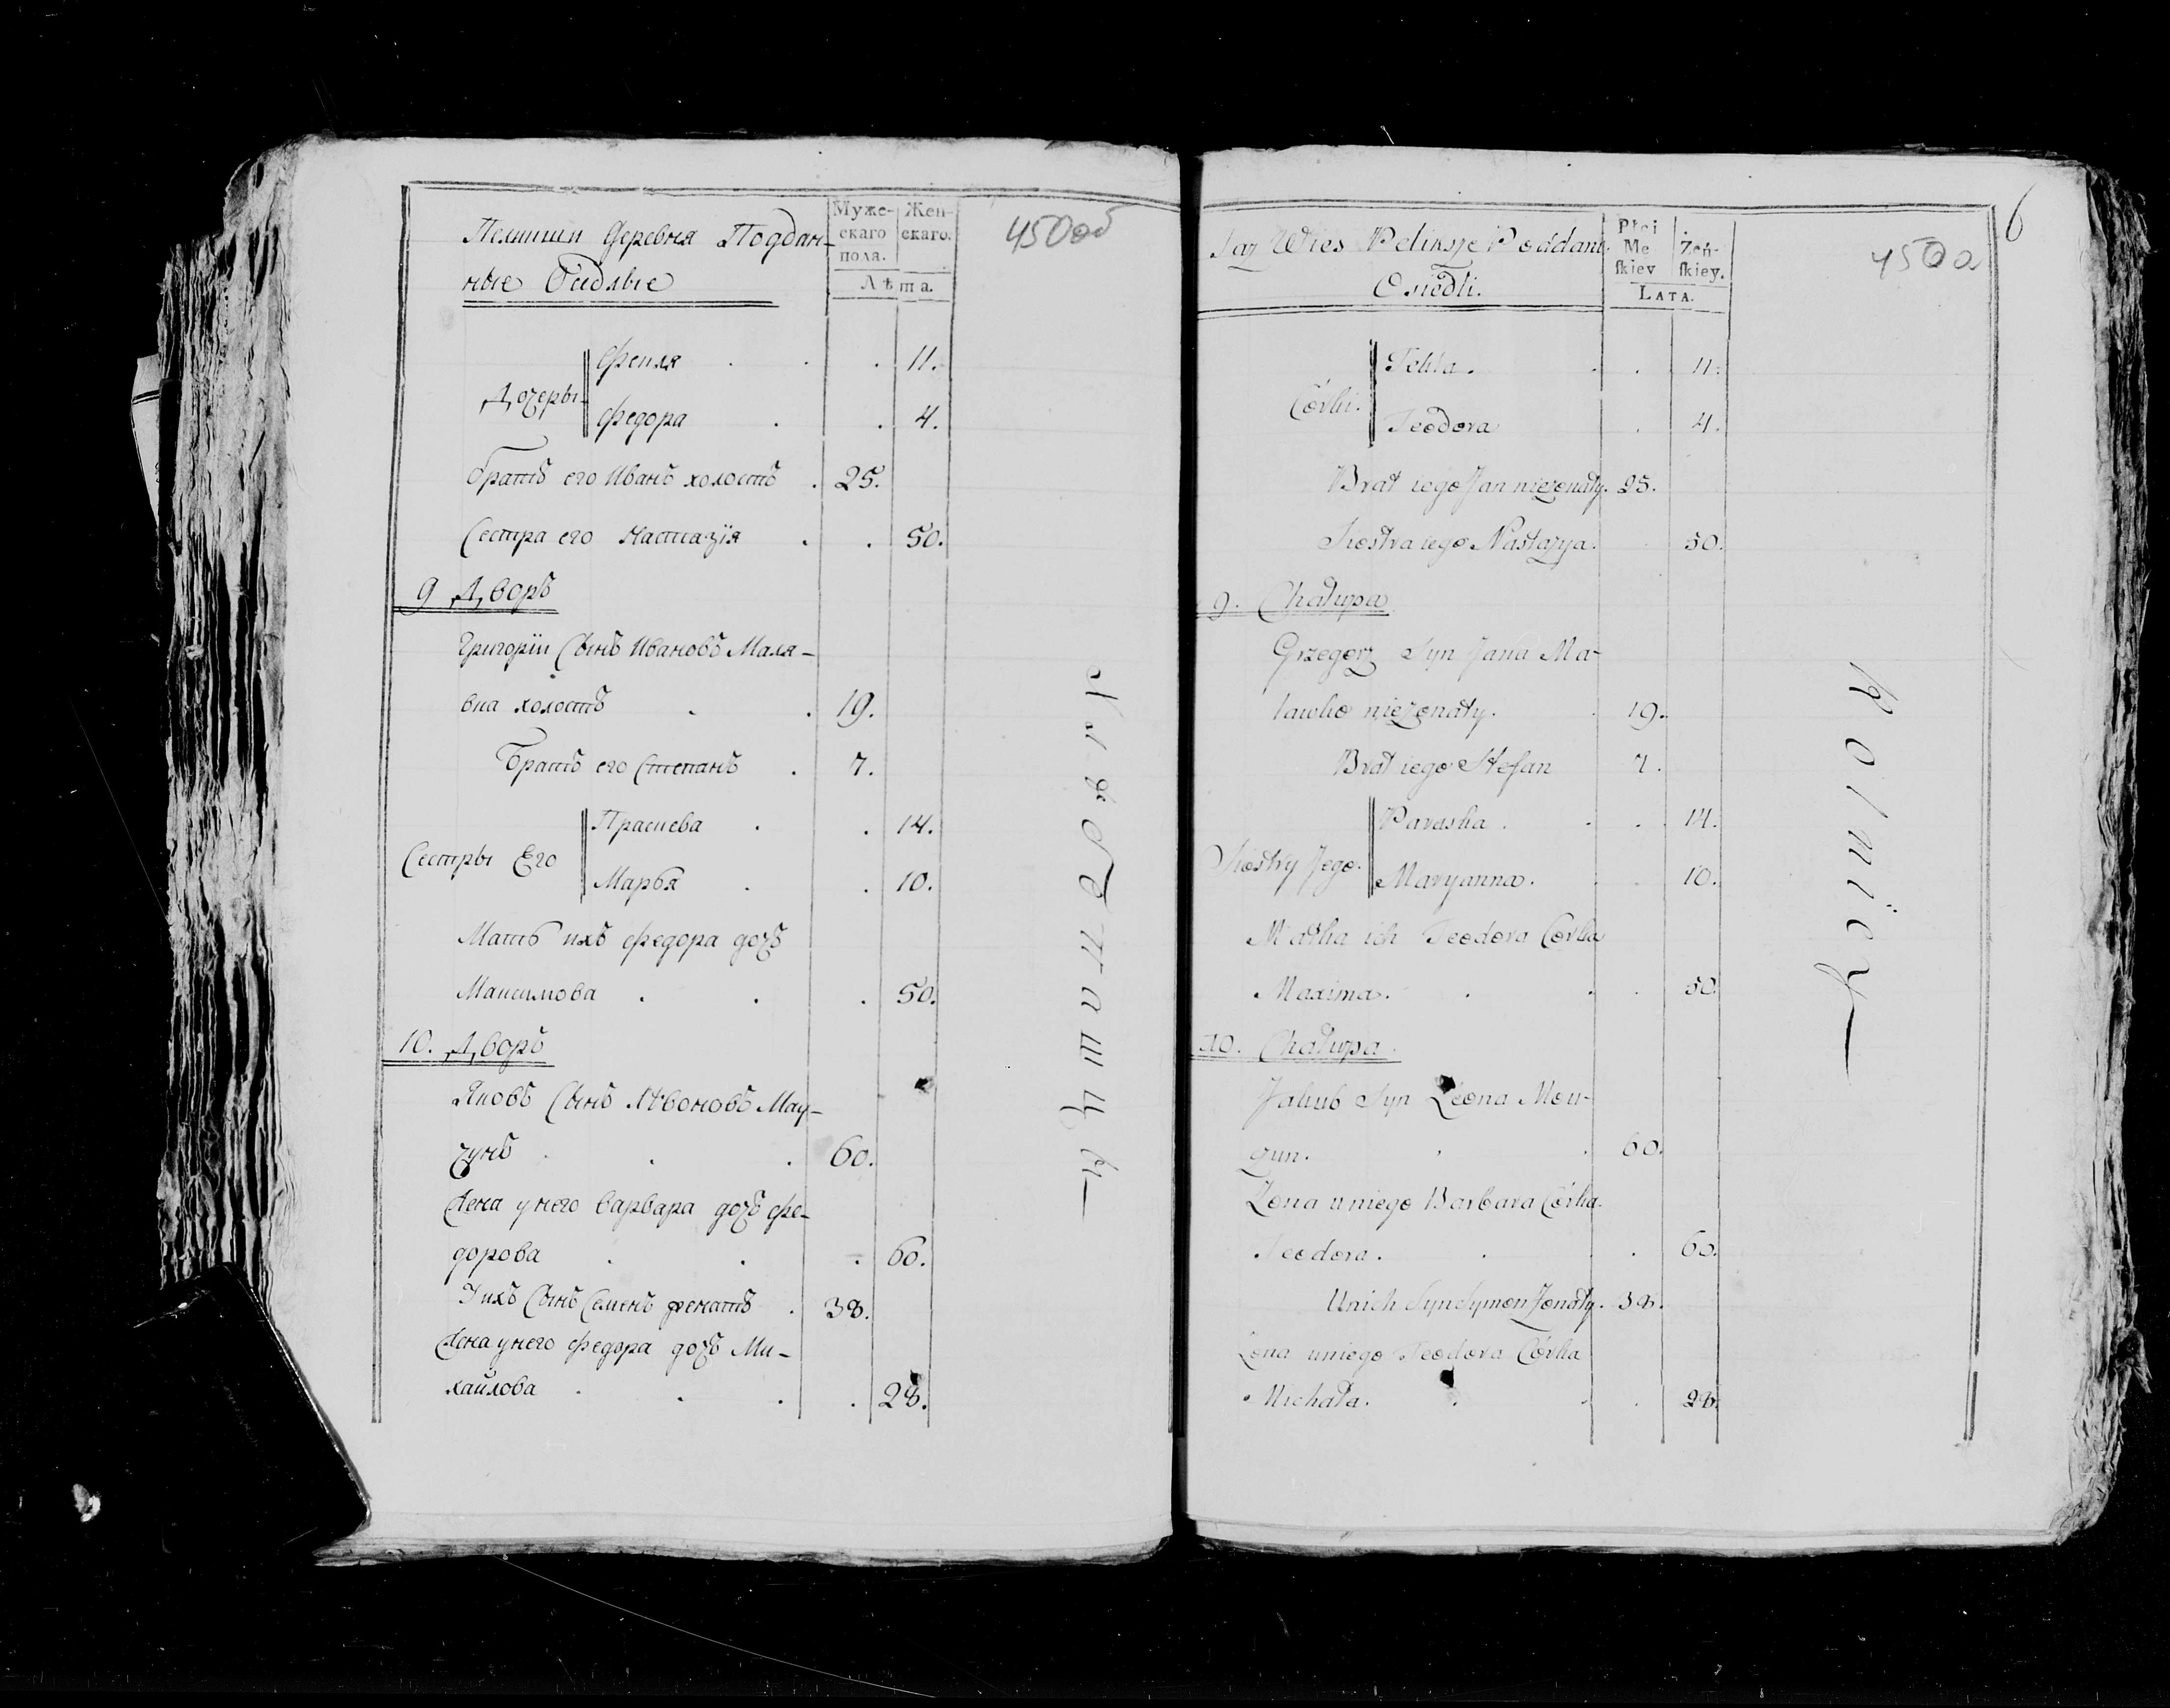 Деревня Поддан-
ные Оседлые
Муже-
скаго
пола.
Жен-
скаго.
Лѣта.
450об
Дочеры
Фекля . . . 11.
Федора . . 4.
Братъ его Иванъ холостъ . 25.
Сестра его Настазїя . . 50.
9 Дворъ
Григорїи Сынъ Ивановъ Маля-
вка холостъ . . 19.
Братъ его Степанъ . 7.
Сестры Его
Праскева . . 14.
Марья . . 10.
Мать ихъ Федора дочь
Максимова . . . 50.
10. Дворъ
Яковъ Сынъ Лѣвоновъ Мау-
зунъ . . . 60.
Жена унего Варвара дочь Фе-
дорова . . . 60.
Уихъ Сынъ Семенъ женатъ . 38.
Жена унего Федора дочь Ми-
хайлова . . . . 28.
6
450а
Wies Peliksze Poddani
Osiedli.
Płci
Me
skiey
Zeń-
skiey.
LATA.
Córki.
Tekla . . . 11.
Teodora . 4.
Brat iego Jan niezonaty. 25.
Siostra iego Nastazya. 50.
9. Chałupa
Grzegorz Syn Jana Ma-
lawko niezonaty. . 19.
Brat iego Stefan 7.
Siostry Jego.
Paraska . . . 14.
Maryanna. . . 10.
Matka ich Teodora Córka
Maxima. . . . 50.
10. Chałupa.
Jakub Syn Leona Mou-
zun. . . 60.
Zona uniego Barbara Córka
Teodora. . . . 60.
Unich Syn Symon Zonaty. 38.
Zona uniego Teodora Córka
Michała. . . . 28.